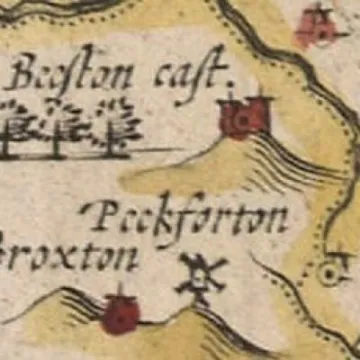 Beeston cast.
Peckforton
Broxton